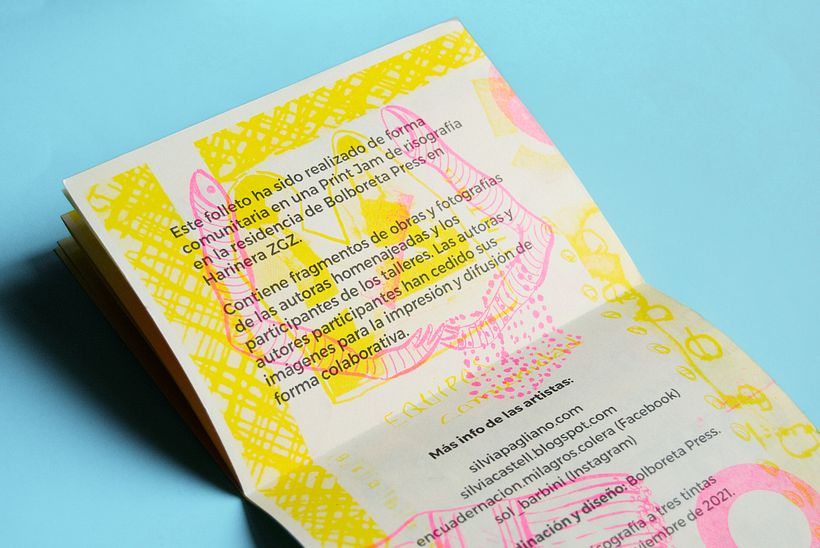 Este folleto ha sido realizado de forma
comunitaria en una Print Jam de risografía
en la residencia de Bolboreta Press en
Harinera ZGZ.
Contiene fragmentos de obras y fotografías
de las autoras homenajeadas y los
participantes de los talleres. Las autoras y
autores participantes han cedido sus
imágenes para la impresión y difusión de
forma colaborativa.
Más info de las artistas:
silviapagliano.com
silviacastell.blogspot.com
encuadernacion.milagros.colera (Facebook)
sol_barbini (Instagram)
dinación y diseño: Bolboreta Press.
ografía a tres tintas
viembre de 2021.